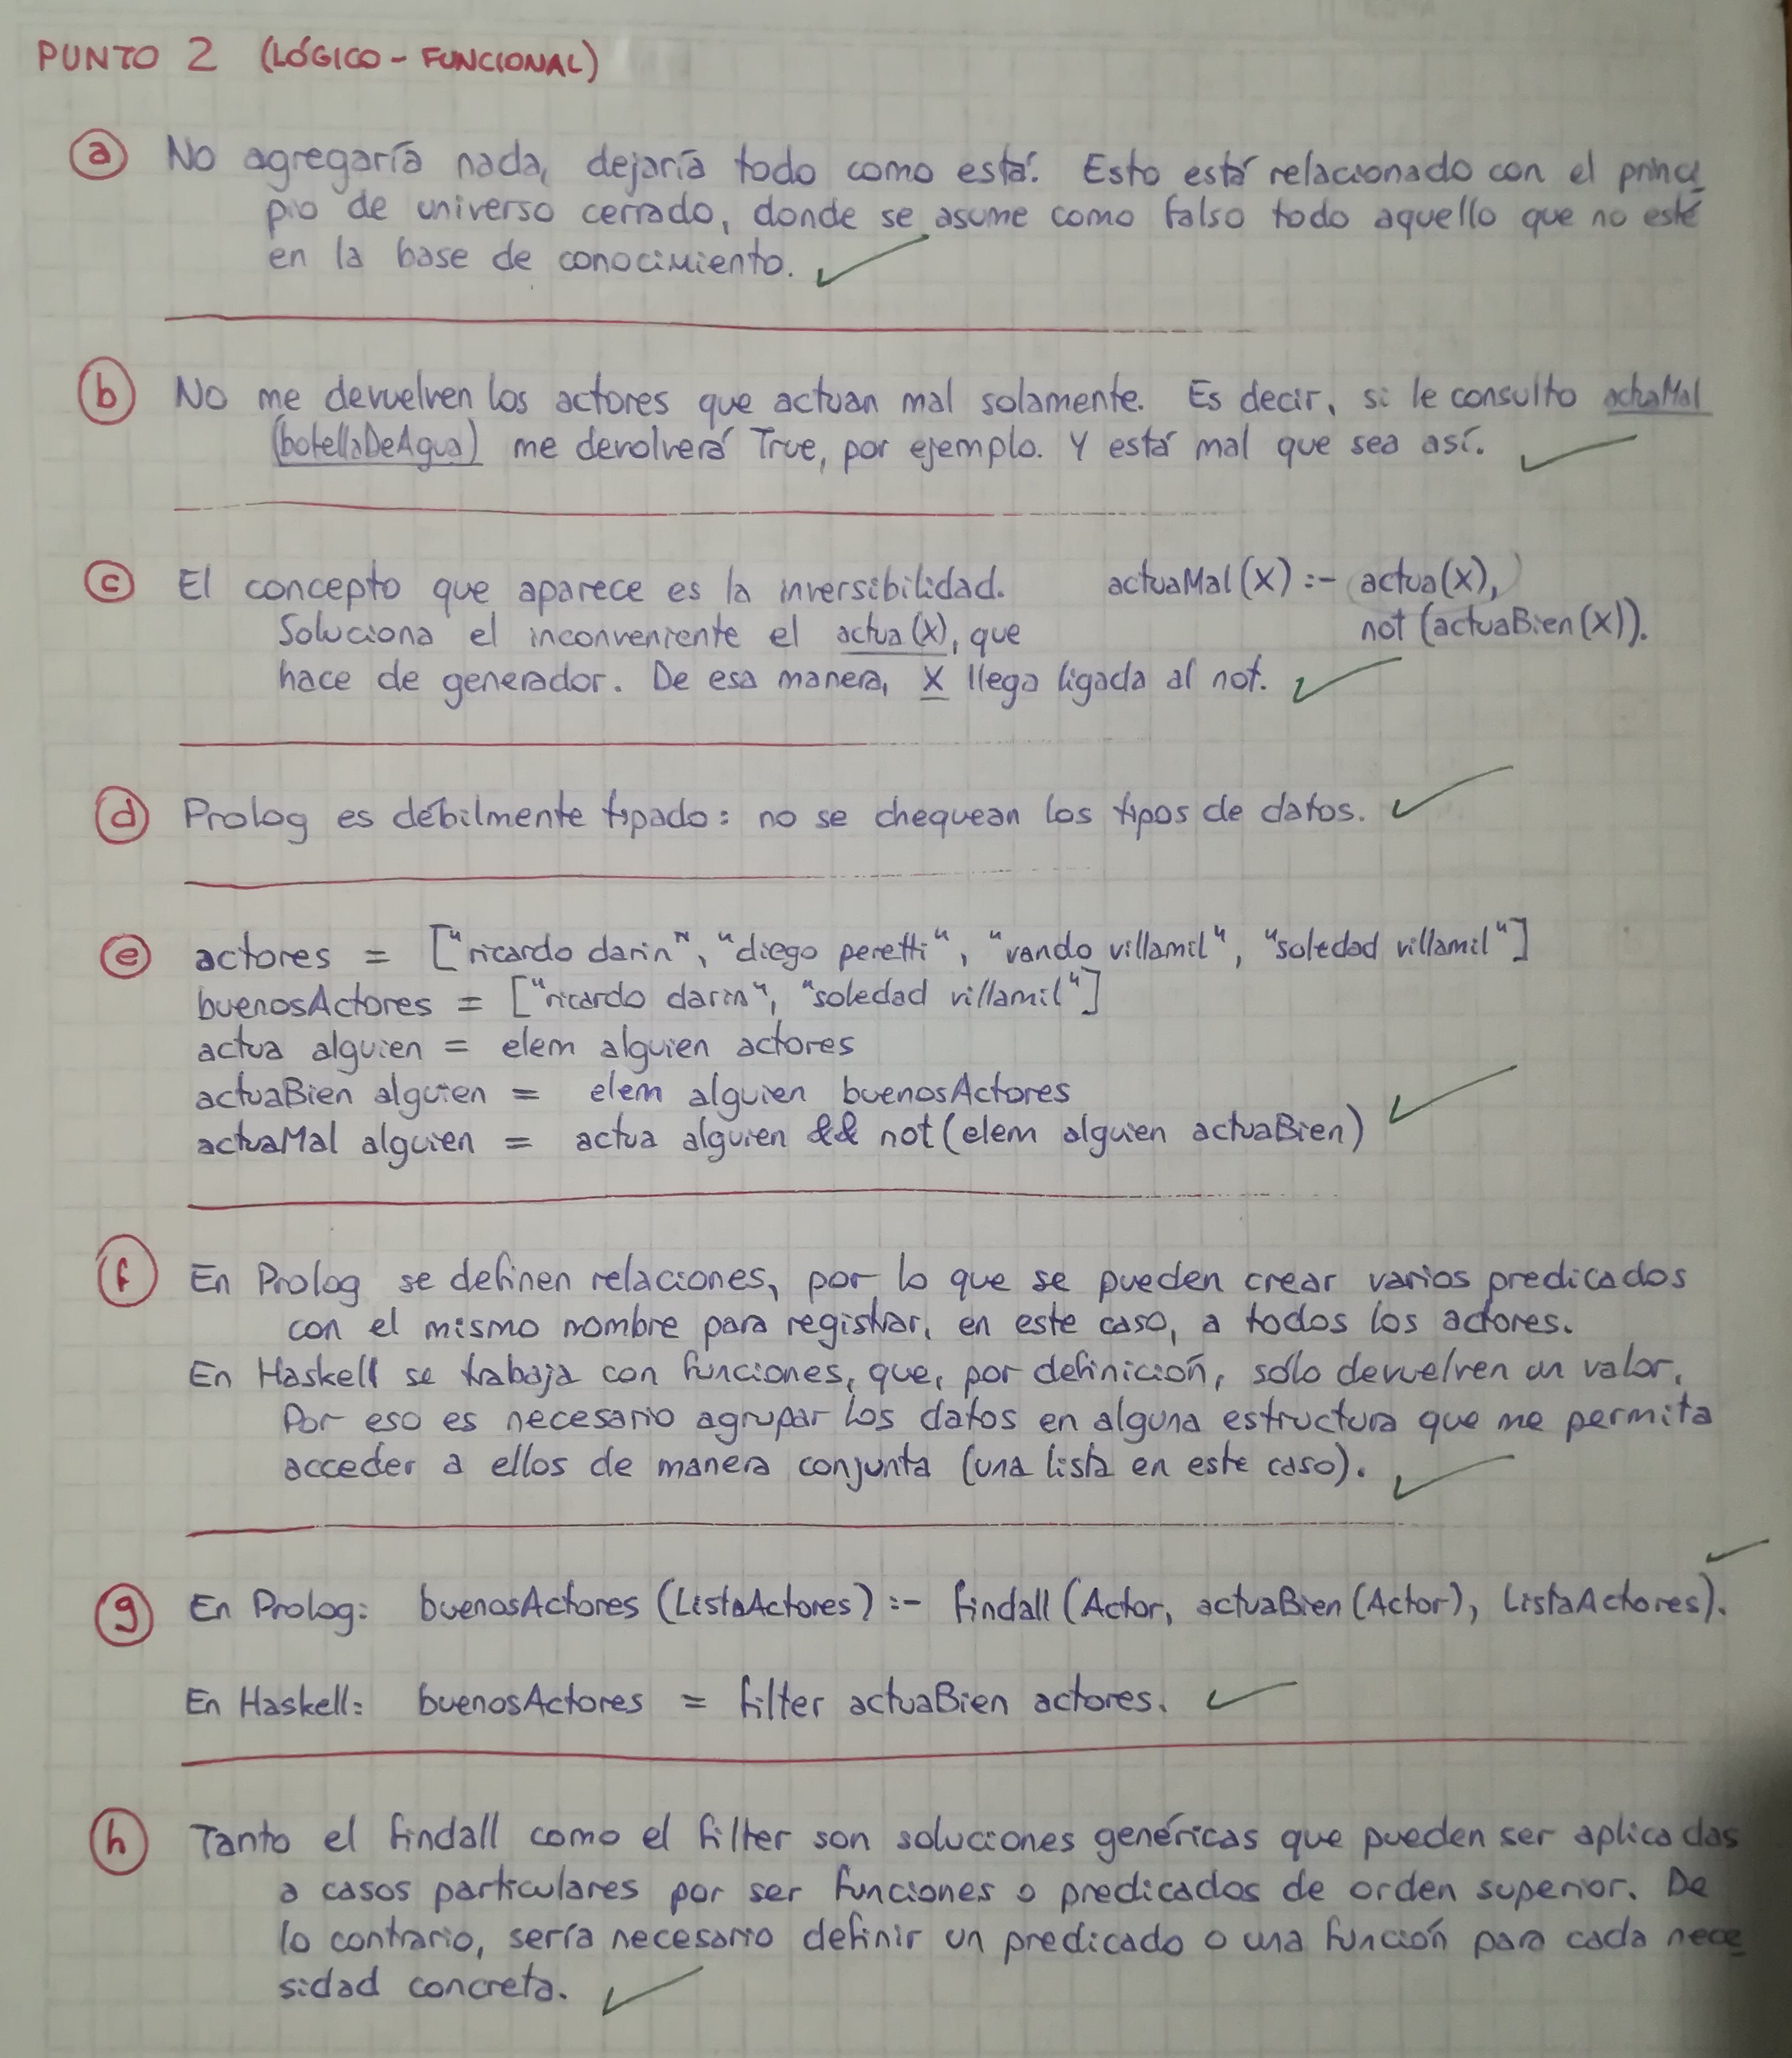 PUNTO 2 (LÓGICO - FUNCIONAL)
a No agregaría nada, dejaría todo como está. Esto está relacionado con el princi
pio de universo cerrado, donde se asume como falso todo aquello que no esté
en la base de conocimiento.
b No me devuelven los actores que actuan mal solamente. Es decir, si le consulto actuaMal
(botellaDeAgua) me devolverá True, por ejemplo. Y está mal que sea así.
c El concepto que aparece es la inversibilidad. actuaMal(X) :- actua(X),
Soluciona el inconveniente el actua(X), que not (actuaBien(X)).
hace de generador. De esa manera, X llega ligada al not.
d Prolog es débilmente tipado: no se chequean los tipos de datos.
e actores = ["ricardo darin", "diego peretti", "vando villamil", "soledad villamil"]
buenosActores = ["ricardo darin", "soledad villamil"]
actua alguien = elem alguien actores
actuaBien alguien = elem alguien buenosActores
actuaMal alguien = actua alguien && not (elem alguien actuaBien)
f En Prolog se definen relaciones, por lo que se pueden crear varios predicados
con el mismo nombre para registrar, en este caso, a todos los actores.
En Haskell se trabaja con funciones, que, por definición, sólo devuelven un valor.
Por eso es necesario agrupar los datos en alguna estructura que me permita
acceder a ellos de manera conjunta (una lista en este caso).
g En Prolog: buenosActores (ListaActores) :- findall (Actor, actuaBien (Actor), ListaActores).
En Haskell: buenosActores = filter actuaBien actores.
h Tanto el findall como el filter son soluciones genéricas que pueden ser aplicadas
a casos particulares por ser funciones o predicados de orden superior. De
lo contrario, sería necesario definir un predicado o una función para cada nece
sidad concreta.